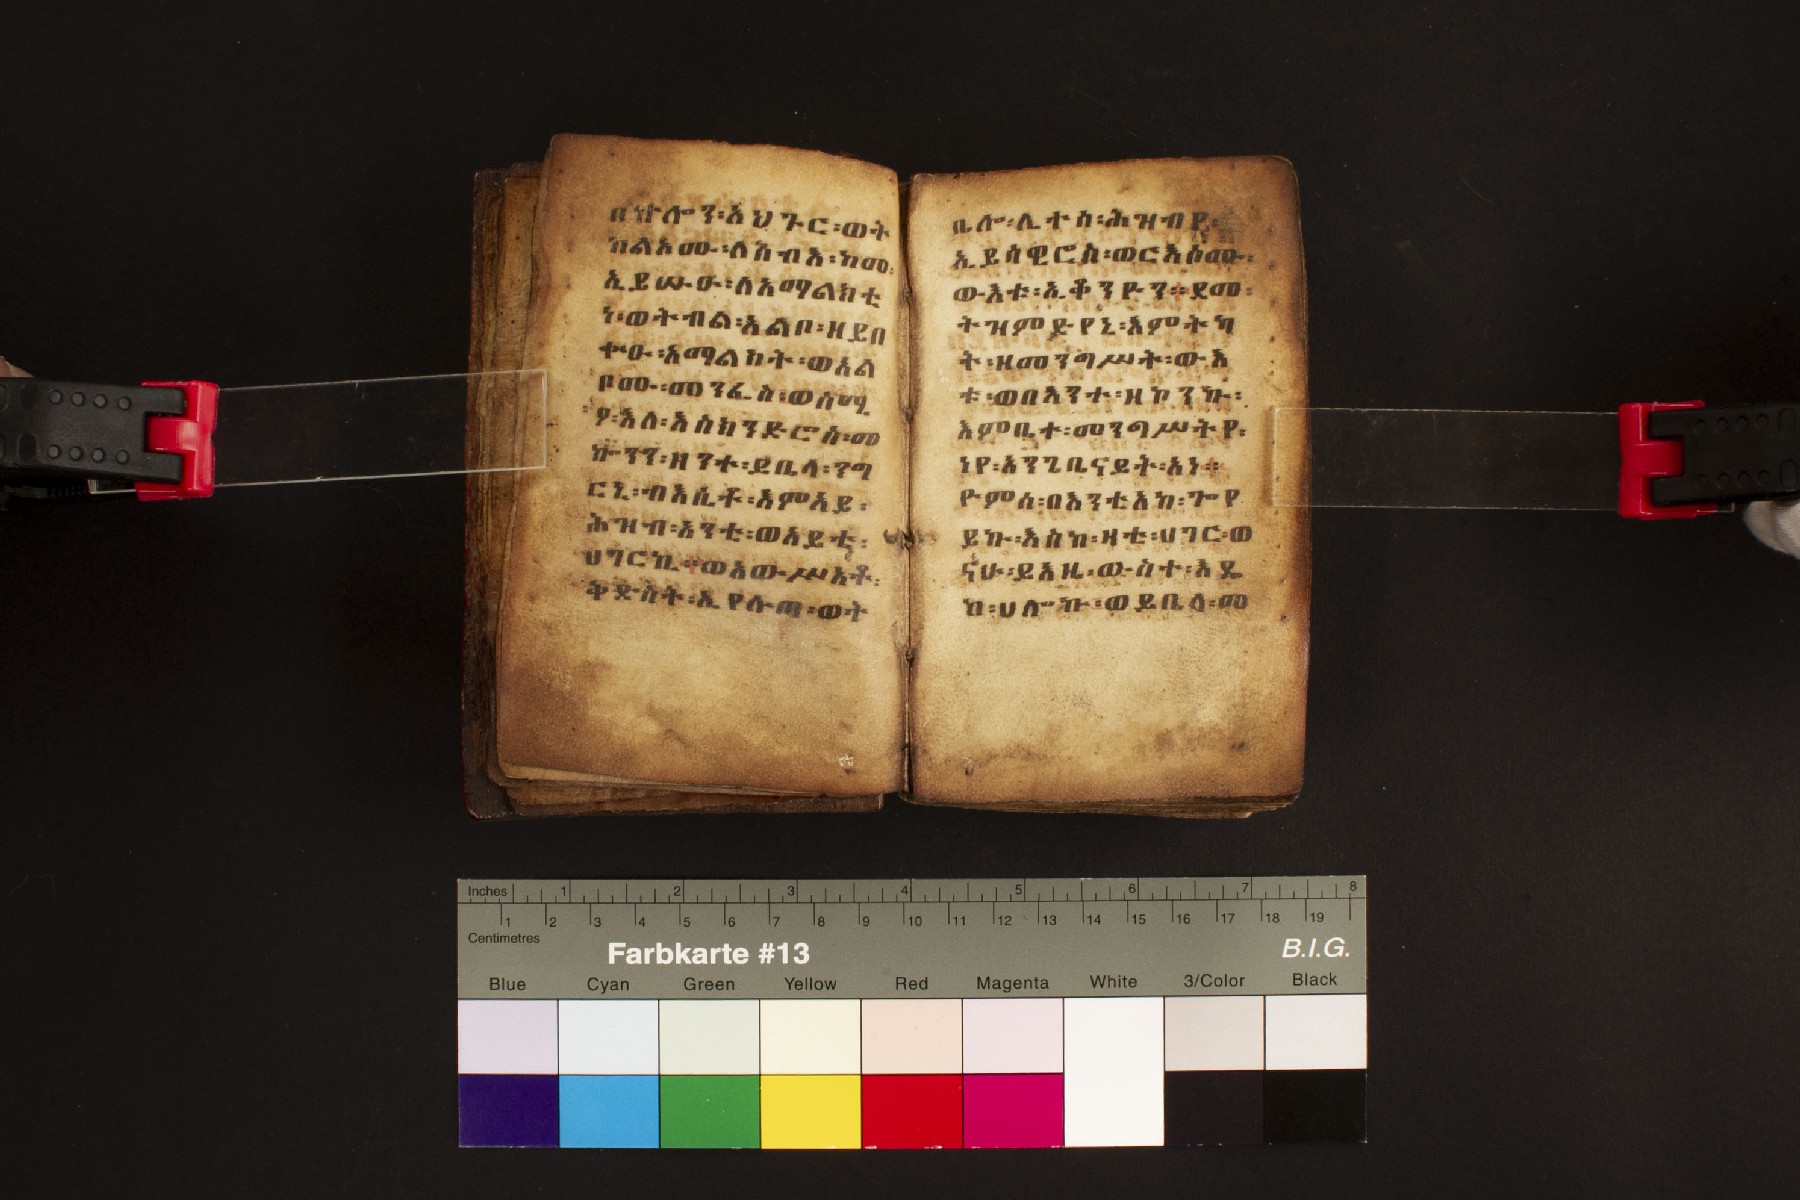 በኵሎን፡አህጉር፡ወት
ከልአሙ፡ለሕብእ፡ከመ፡
ኢይሡዑ፡ለአማልክቲ
ነ፡ወትብል፡አልቦ፡ዘይበ
ቍዑ፡አማልክት፡ወአል
ቦሙ፡መንፈስ፡ወሰሚ
ዖ፡እለ፡እስክንድሮስ፡መ
ኰንን፡ዘንተ፡ይቤላ፡ንግ
ርኒ፡ብእሲቶ፡እምአይ፡
ሕዝብ፡አንቲ፡ወአይቲ፡
ሀገርኪ፡ወአውሥአቶ፡
ቅድስት፡ኢየሉጣ፡ወት
ቤሎ፡ሊተሰ፡ሕዝብየ፡
ኢይሰዊሮስ፡ወርእሰሙ፡
ውእቱ፡ኢቆንዮን፡፡ደመ፡
ትዝምድየኒ፡እምትካ
ት፡ዘመንግሥት፡ውእ
ቱ፡ወበእንተ፡ዘኮንኩ፡
እምቤተ፡መንግሥትየ፡
ነየ፡እንጊቤናይት፡አነ፡፡
ዮምሰ፡በእንቲአከ፡ጐየ
ይኩ፡እስከ፡ዛቲ፡ሀገር፡ወ
ናሁ፡ይእዜ፡ውስተ፡እዴ
ከ፡ሀሎኩ፡ወይቤላ፡መ
Inches 1 2 3 4 5 6 7 8
1 2 3 4 5 6 7 8 9 10 11 12 13 14 15 16 17 18 19
Centimetres
Farbkarte #13 B.I.G.
Blue Cyan Green Yellow Red Magenta White 3/Color Black